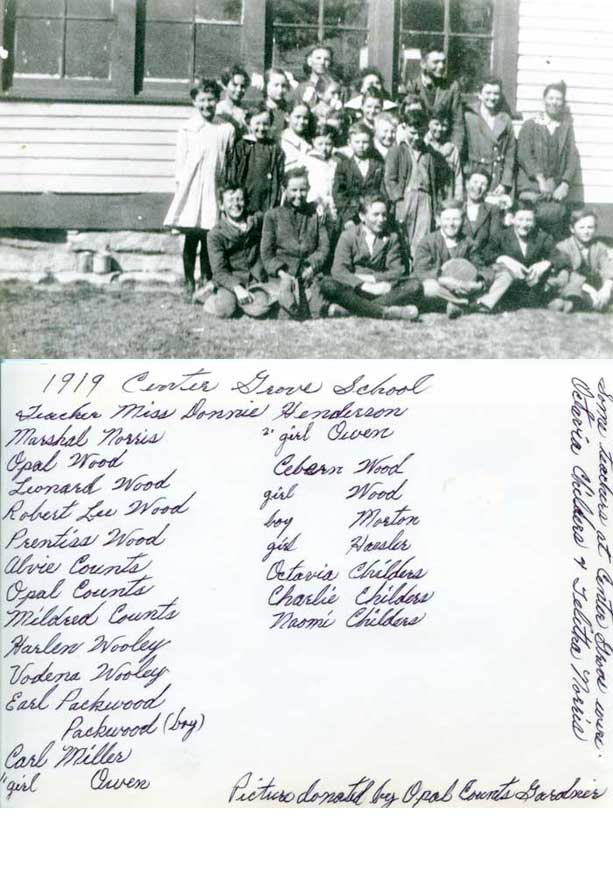 1919 Center Grove School
Teacher Miss Donnie Henderson
Marshal Norris
Opal Wood
Leonard Wood
Robert Lee Wood
Prentiss Wood
Alvie Counts
Opal Counts
Mildred Counts
Harlen Wooley
Vodena Wooley
Earl Packwood
Packwood (boy)
Carl Miller
"girl Owen
2" girl Owen
Ceborn Wood
girl Wood
boy Morton
girl Haesler
Octavia Childers
Charlie Childers
Naomi Childers
Some teachers at Center Grove were:
Octavia Childers & Telitha Norris
Picture donated by Opal Counts Gardner